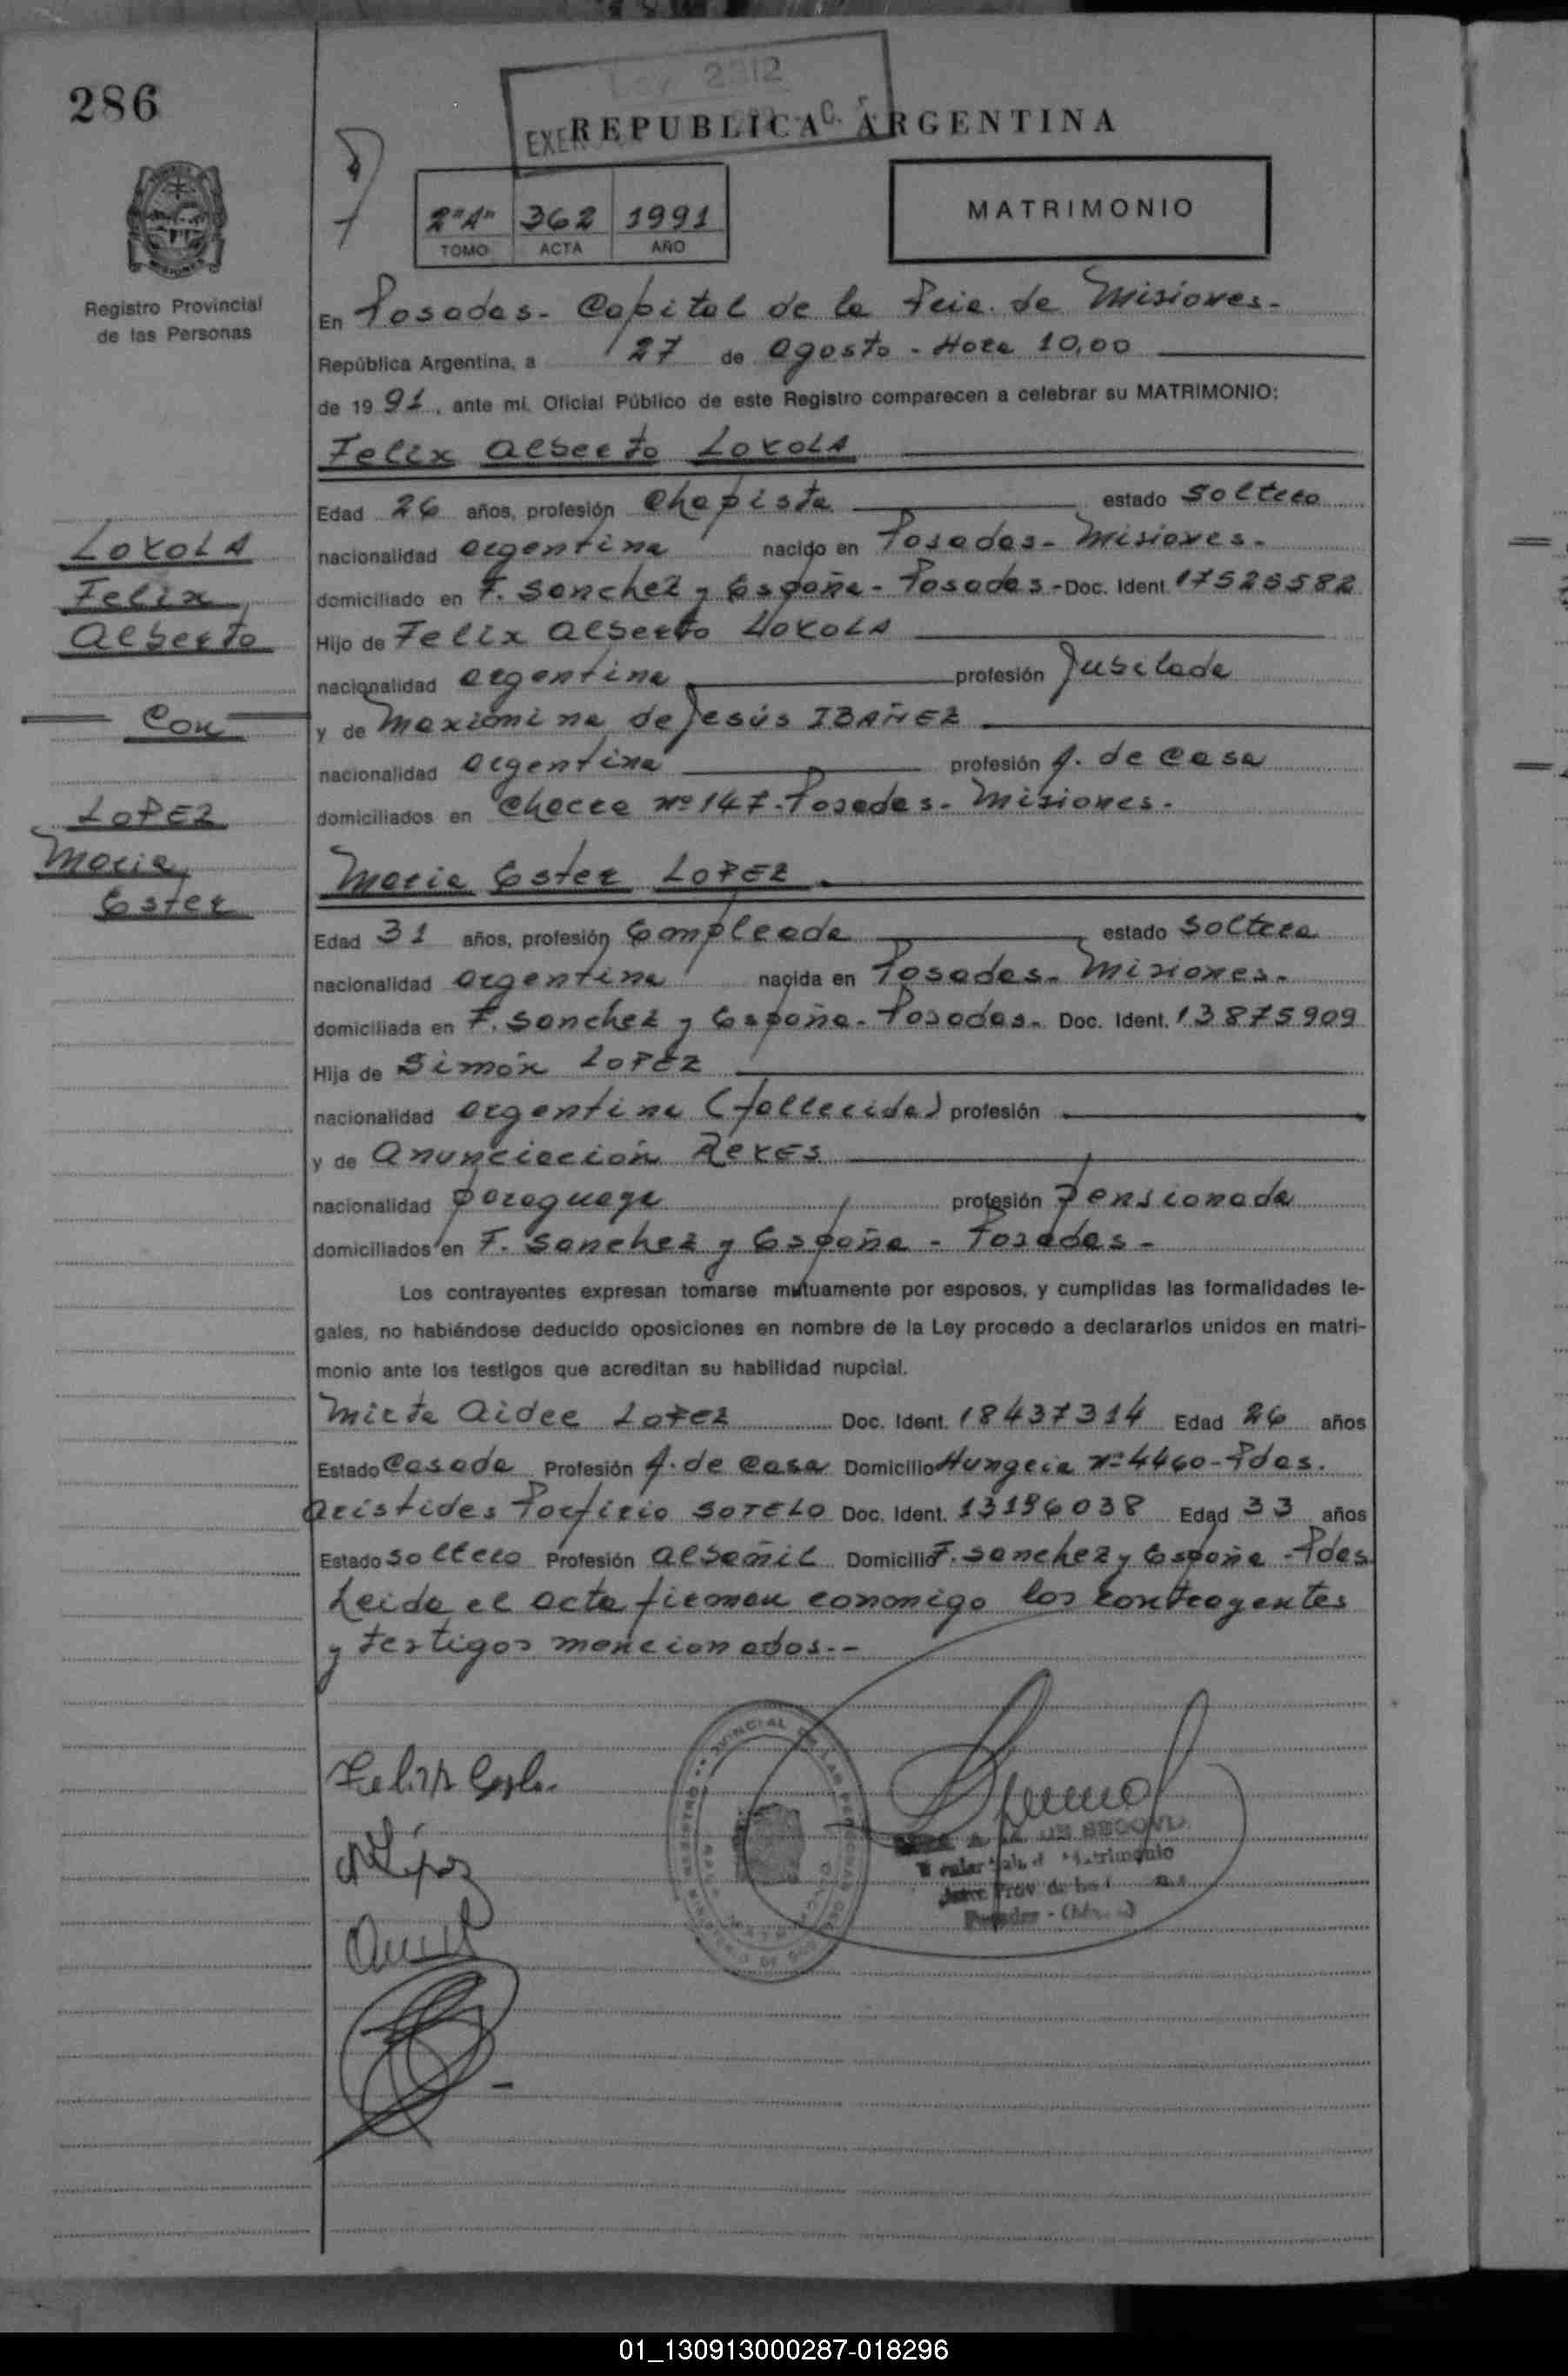 286
Ley 2312
EXE
REPUBLICA ARGENTINA
2"A" 362 1991
TOMO ACTA AÑO
MATRIMONIO
Registro Provincial
de las Personas
En Posadas - Capital de la Pcia. de Misiones -
República Argentina, a 27 de Agosto - Hora 10,00
de 19 91, ante mí, Oficial Público de este Registro comparecen a celebrar su MATRIMONIO:
Felix Alberto LOYOLA
Edad 26 años, profesión Chapista estado soltero
nacionalidad argentina nacido en Posadas - Misiones -
domiciliado en F. Sanchez y España - Posadas - Doc. Ident. 17523582
Hijo de Felix Alberto LOYOLA
nacionalidad argentina profesión Jubilado
y de Maximina de Jesús IBAÑEZ
nacionalidad argentina profesión A. de Casa
domiciliados en Chacra nº 147 - Posadas - Misiones -
LOYOLA
Felix
Alberto
Con
LOPEZ
Maria
Ester
Maria Ester LOPEZ
Edad 31 años, profesión Empleada estado soltera
nacionalidad argentina nacida en Posadas - Misiones -
domiciliada en F. Sanchez y España - Posadas - Doc. Ident. 13875909
Hija de Simón LOPEZ
nacionalidad argentina (fallecido) profesión
y de Anunciación REYES
nacionalidad paraguaya profesión Pensionada
domiciliados en F. Sanchez y España - Posadas -
Los contrayentes expresan tomarse mutuamente por esposos, y cumplidas las formalidades le-
gales, no habiéndose deducido oposiciones en nombre de la Ley procedo a declararlos unidos en matri-
monio ante los testigos que acreditan su habilidad nupcial.
Mirta Aidee LOPEZ Doc. Ident. 18437314 Edad 26 años
Estado Casada Profesión A. de Casa Domicilio Hungria nº 4460 - Pdas.
Aristides Porfirio SOTELO Doc. Ident. 13196038 Edad 33 años
Estado soltero Profesión albañil Domicilio F. Sanchez y España - Pdas
Leida el acta firman conmigo los contrayentes
y testigos mencionados. -
01_130913000287-018296